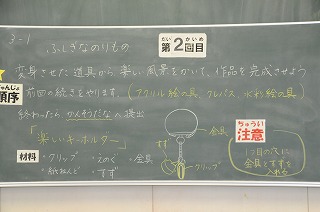 3-1
ふしぎなのりもの
だい かいめ
第2回目
変身させた道具から、楽しい風景をかいて、作品を完成させよう
じゅんじょ
順序
前回の続きをやります。(アクリル絵の具、クレパス、水彩絵の具)
終わったら、かんそうだなへ提出
「楽しいキーホルダー」
材料
・クリップ ・えのぐ ・金具
・紙ねんど ・すず
金具
すず
クリップ
ちゅうい
注意
1つ目の次に
金具とすずを
入れる